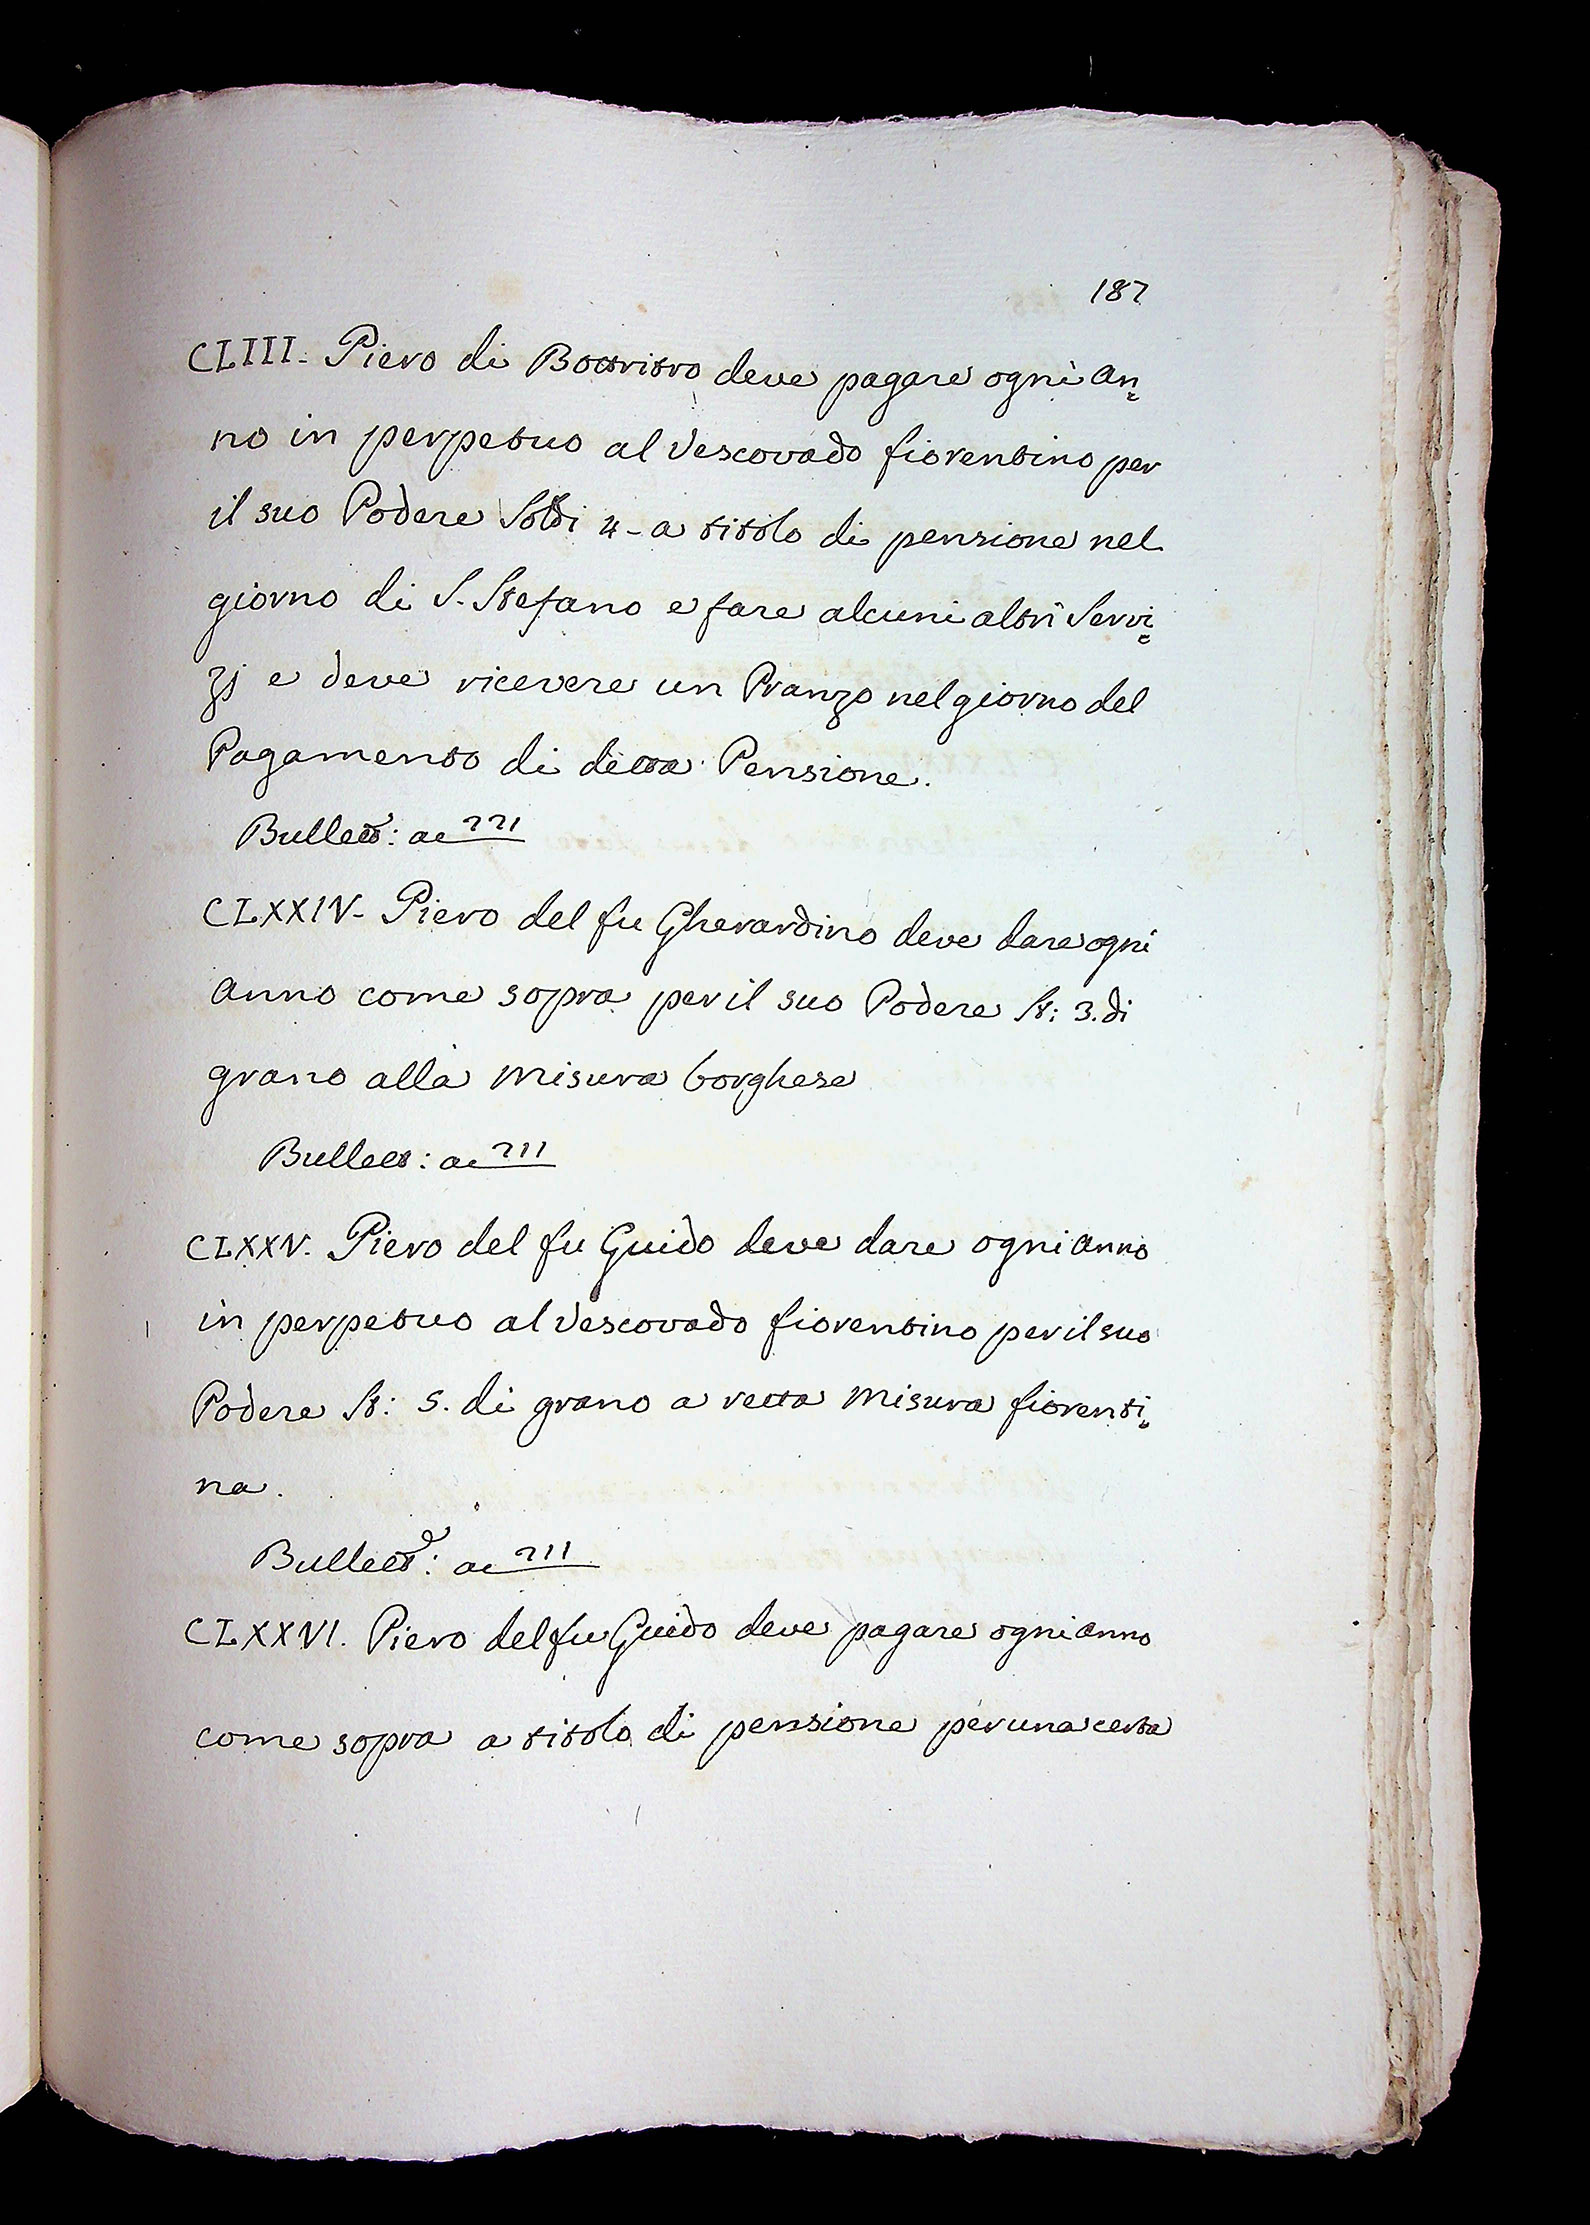 187
CLIII. Piero di Bottritro deve pagare ogni an=
no in perpetuo al Vescovado fiorentino per
il suo Podere Soldi 4 - a titolo di pensione nel
giorno di S. Stefano e fare alcuni altri Servi=
zj e deve ricevere un Pranzo nel giorno del
Pagamento di detta Pensione.
Bullett: ac 221
CLXXIV - Piero del fu Gherardino deve dare ogni
anno come sopra per il suo Podere St: 3. di
grano alla misura borghese
Bullett: ac 211
CLXXV. Piero del fu Guido deve dare ogni anno
in perpetuo al Vescovado fiorentino per il suo
Podere St: 5. di grano a retta misura fiorenti=
na.
Bullett: ac 211
CLXXVI. Piero del fu Guido deve pagare ogni anno
come sopra a titolo di pensione per una certa